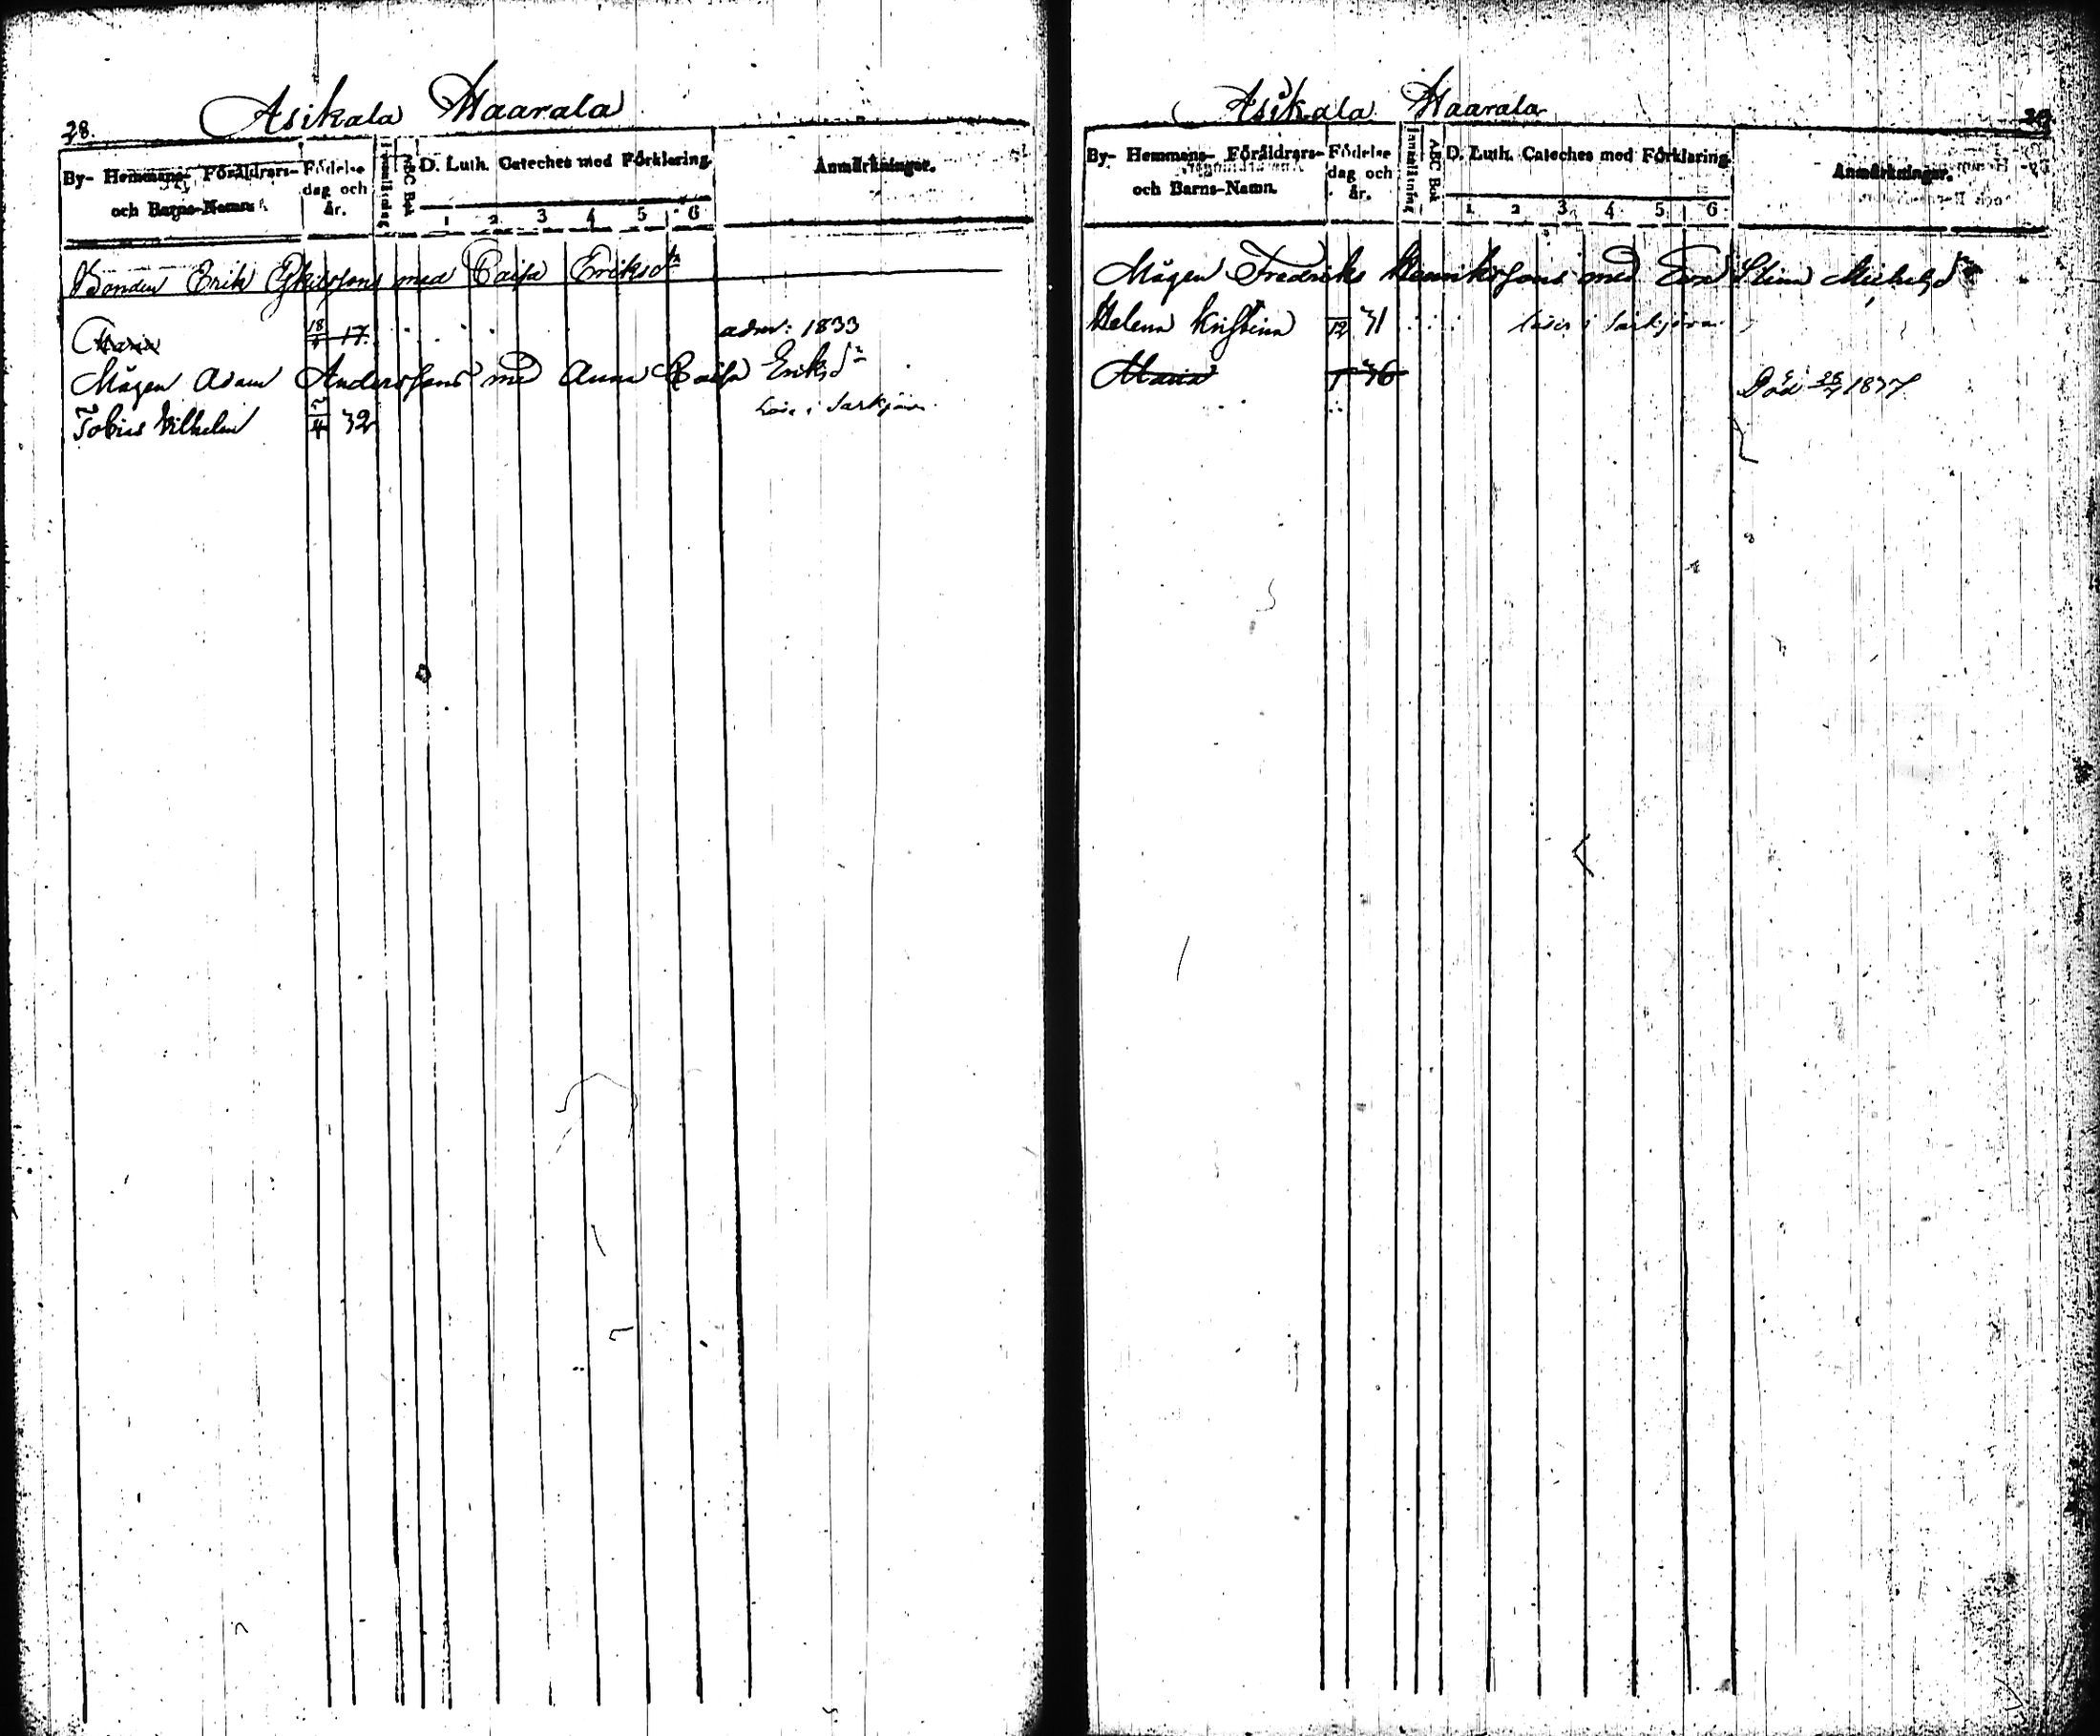 28.
Asikala Haarala
By- Hemmans- Föräldrars- och Barns-Namn.
Födelse dag och år.
Innanläsning
ABC Bok
D. Luth. Cateches med Förklaring.
1 2 3 4 5 6
Anmärkningar.
Bonden Erik Eskilssons med Caisa Eriksdr
18 17. adm: 1833
Mågen Adam Anderssons med Anna Caisa Eriksdr
Tobias Vilhelm 5/4 32 Läser i Särkijärvi
29.
Asikala Haarala
By- Hemmans- Föräldrars- och Barns-Namn.
Födelse dag och år.
Innanläsning
ABC Bok
D. Luth. Cateches med Förklaring.
1. 2 3. 4 5. 6.
Anmärkningar.
Mågen Fredriks Henrikssons med Eva Stina Michelsdr
Helena Kristina 1/12 31 läser i Särkijärvi
Maria 36 Död 1837